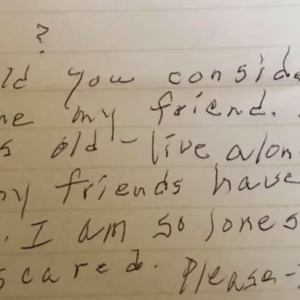 ?
ld you consid
me my friend.
s old - live alon
ny friends have
. I am so lones
scared. Please -